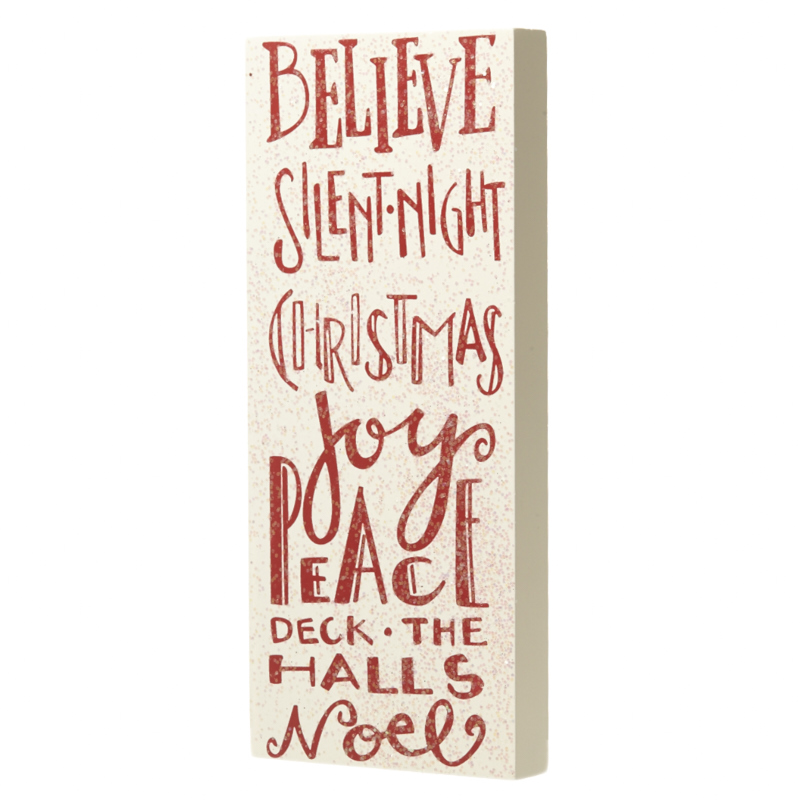 BELIEVE
SILENT·NIGHT
CHRISTMAS
Joy
PEACE
DECK·THE
HALLS
Noel